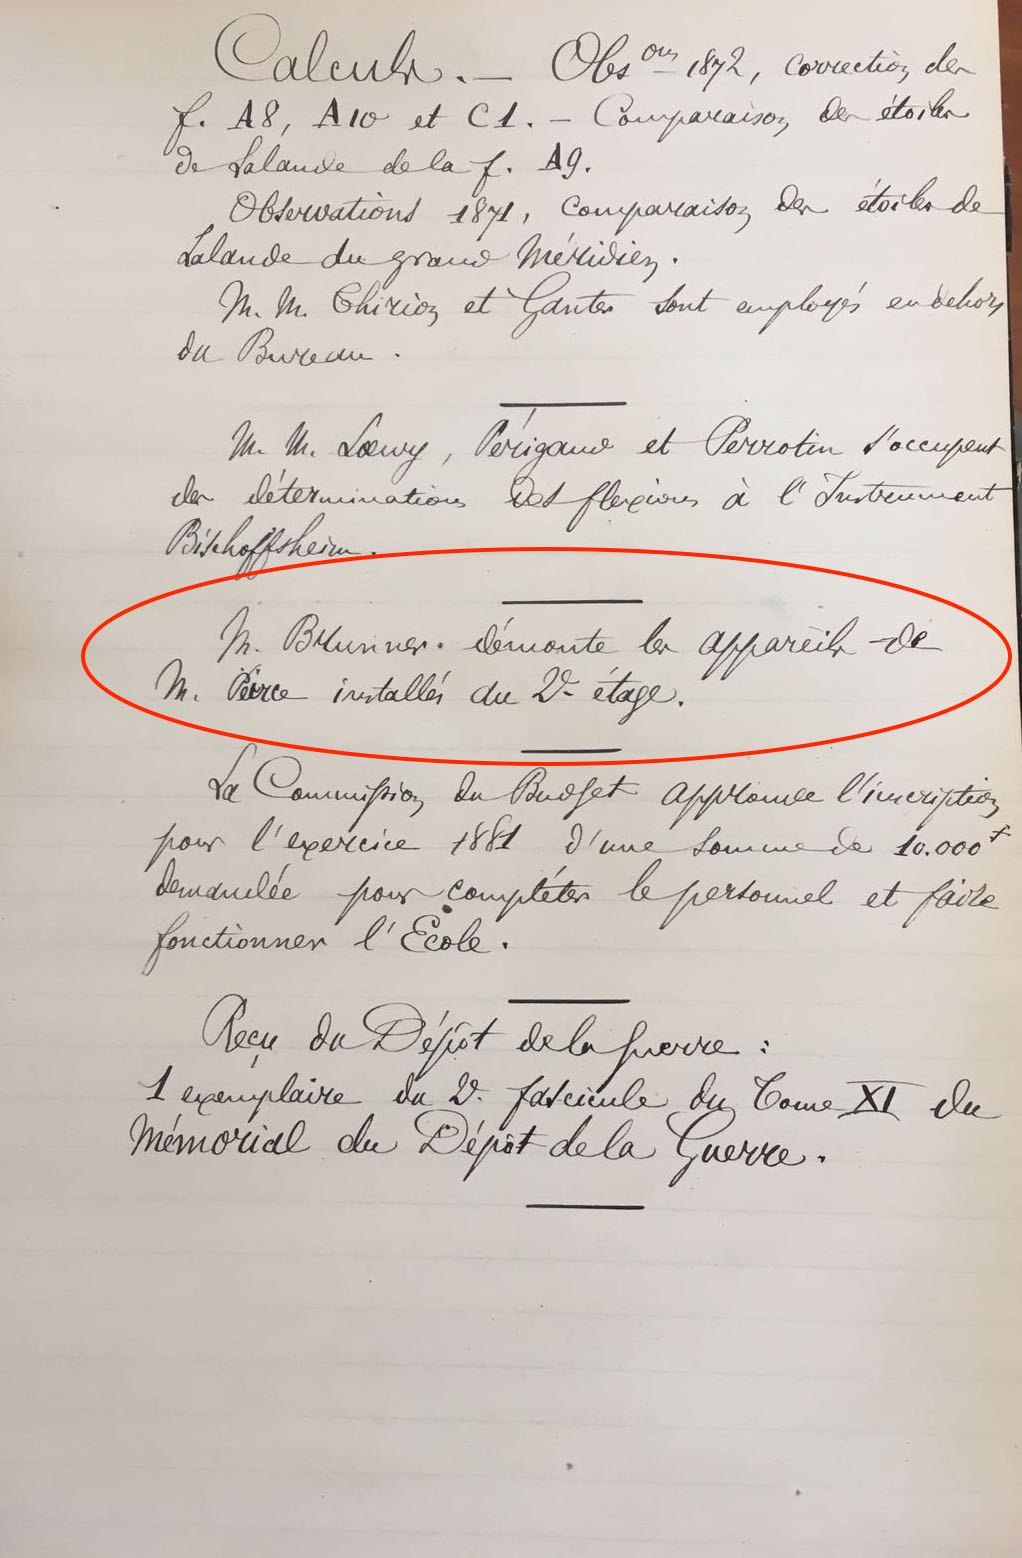 Calculs. — Obs^ons 1872, correction des
f. A8, A10 et C1. — Comparaison des étoiles
de Lalande de la f. A9.
Observations 1871, comparaison des étoiles de
Lalande du grand Méridien.
M. M. Thirion et Ganter sont employés en dehors
du Bureau.
M. M. Lœwy, Périgaud et Perrotin s'occupent
des déterminations des flexions à l'Instrument
Bischoffsheim.
M. Brunner. démonte les appareils de
M. Peirce installés au 2e étage.
La Commission du Budget approuve l'inscription
pour l'exercice 1881 d'une somme de 10.000f
demandée pour compléter le personnel et faire
fonctionner l'École.
Reçu du Dépôt de la guerre :
1 exemplaire du 2e fascicule du Tome XI du
Mémorial du Dépôt de la Guerre.